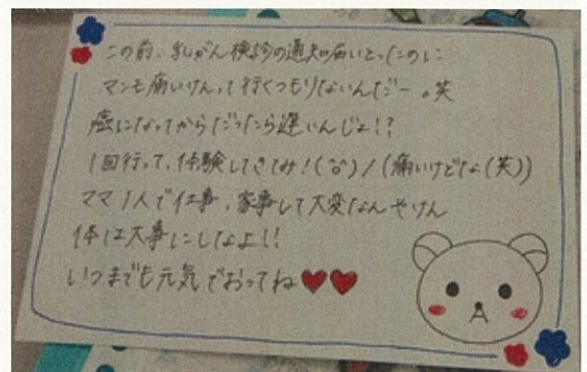 この前、乳がん検診の通知届いとったのに
マンモ痛いけんって行くつもりないんだー。笑
癌になってからだったら遅いんじょ!?
1回行って、体験してきてみ!(°o°)/(痛いけどな(笑))
ママ1人で仕事、家事して大変なんやけん
体は大事にしなよ!!
いつまでも元気でおってね♥♥